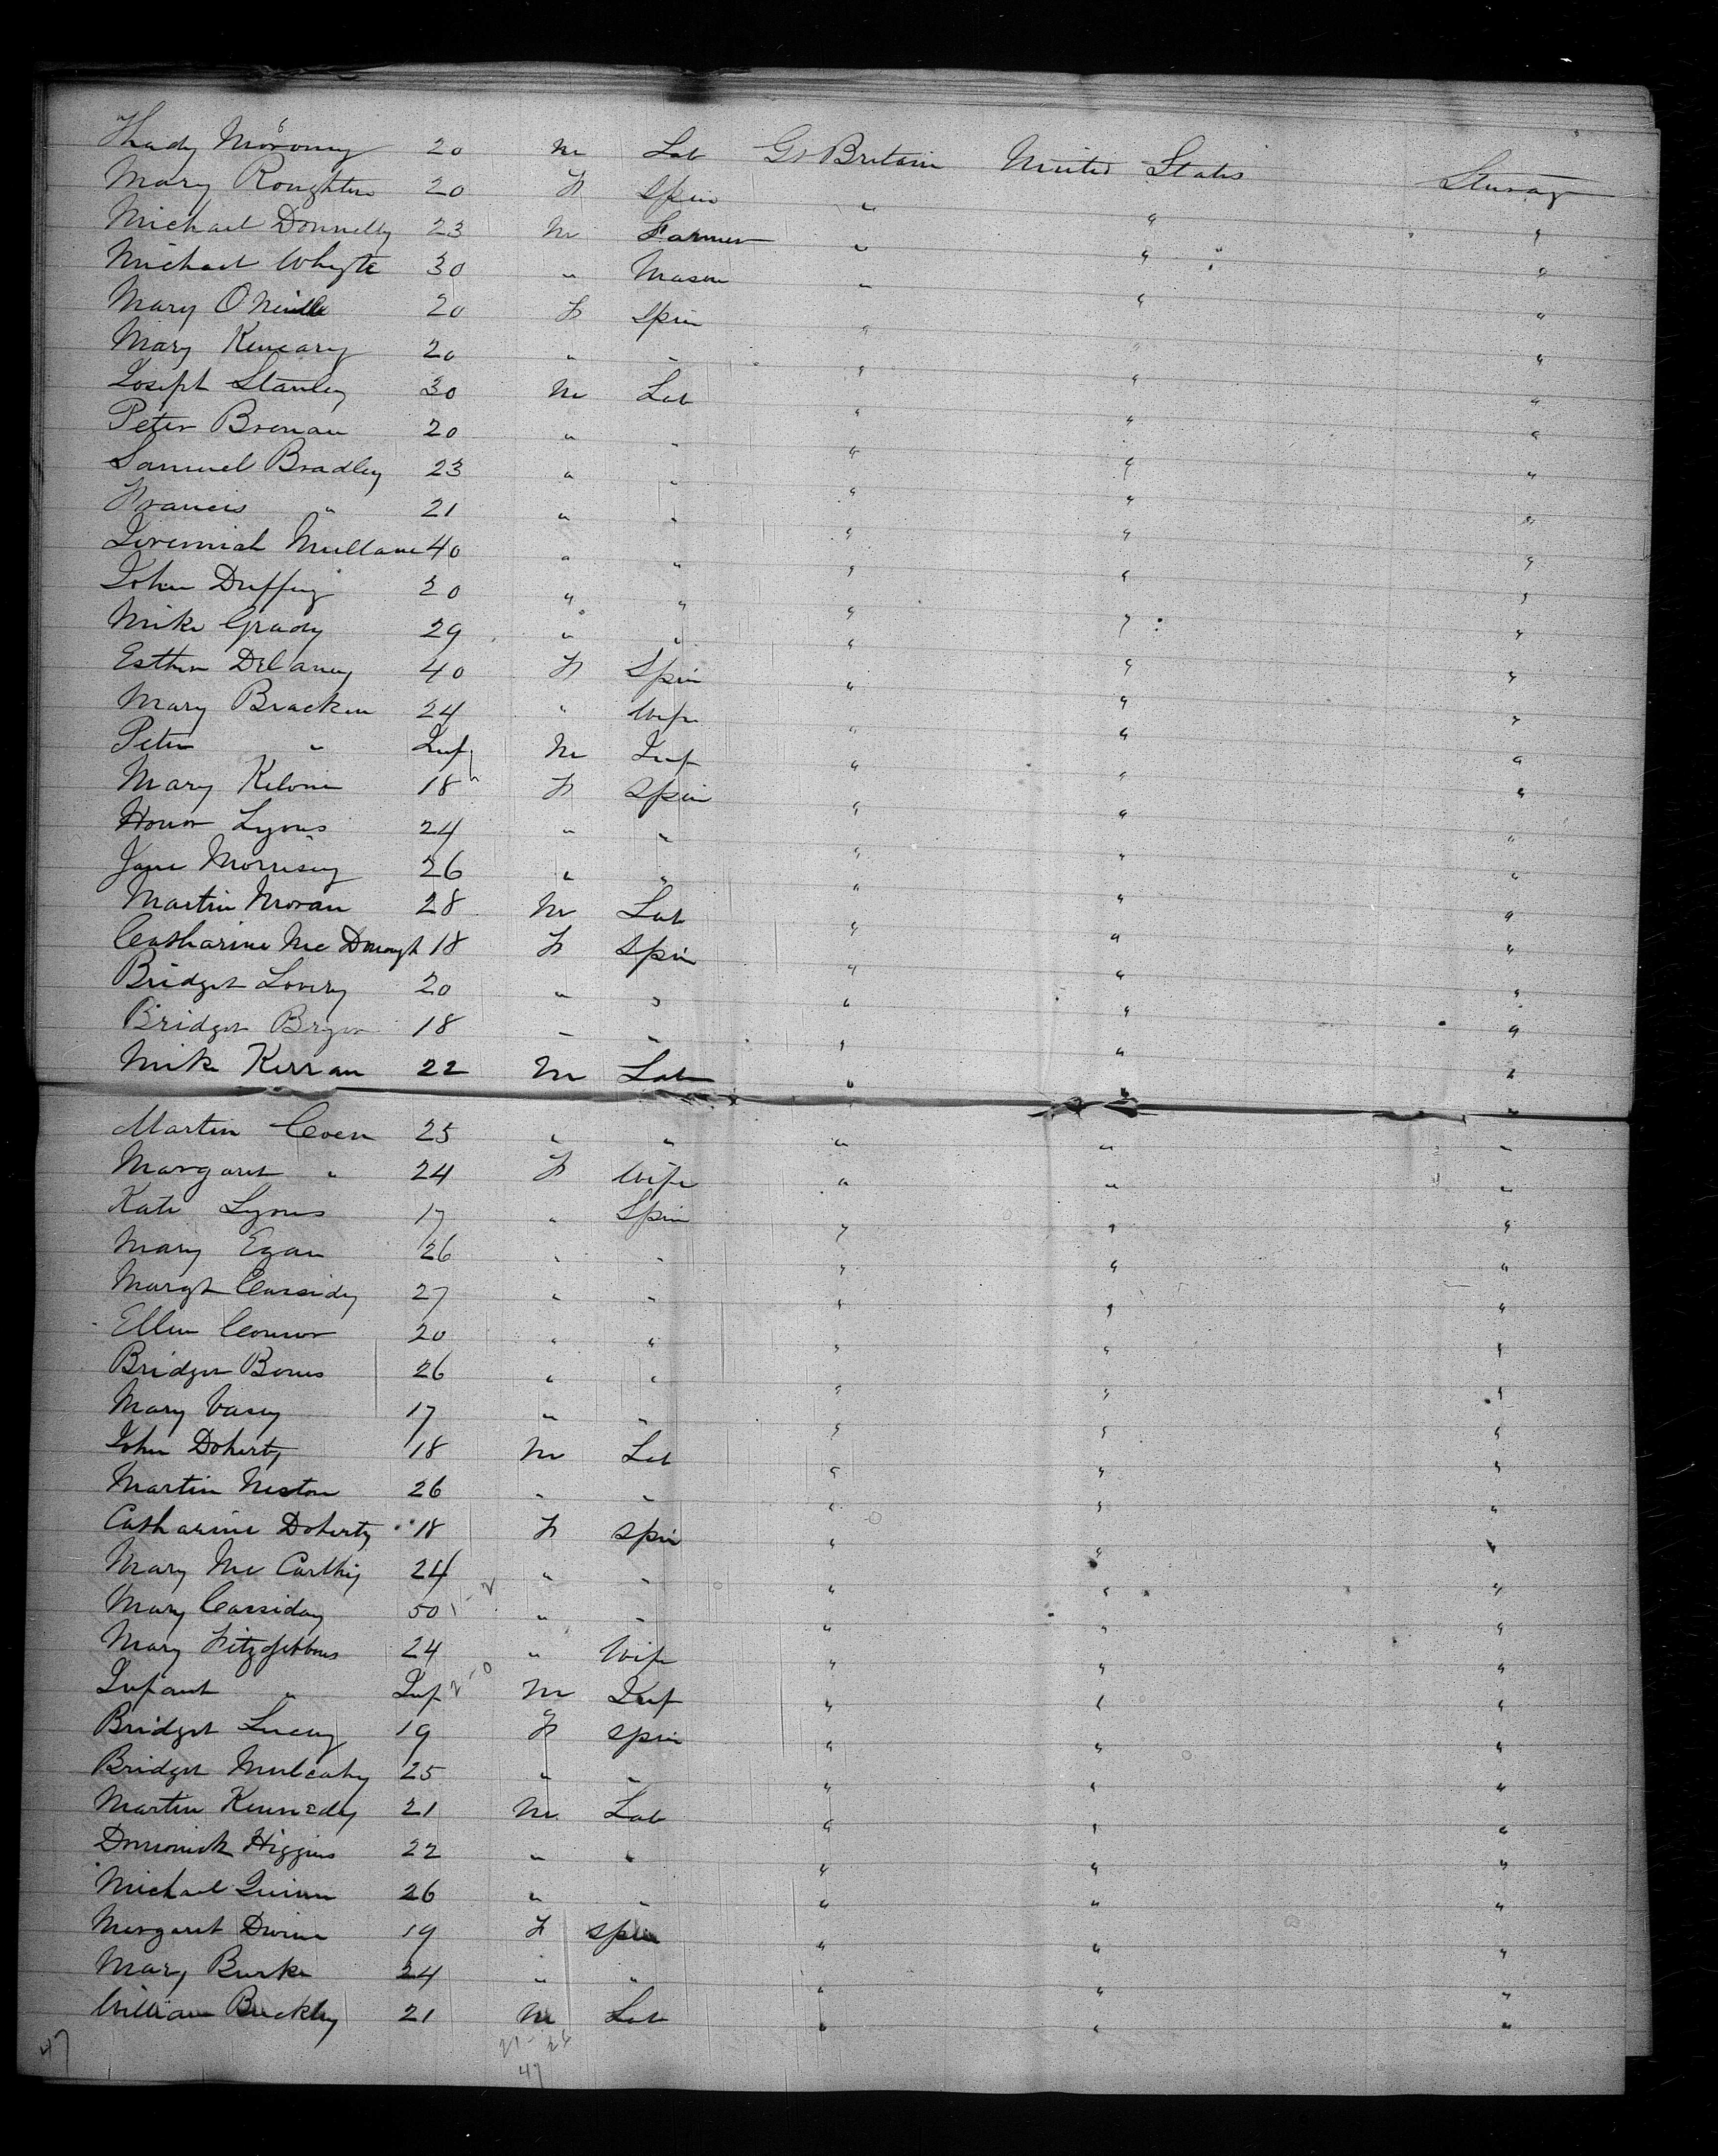 Thady Moroney 20 M Lab Gt Britain United States Steerage
Mary Roughten 20 F Spin " " "
Michael Donnelly 23 M Farmer " " "
Michael Whyte 30 " Mason " " "
Mary O'Neille 20 F Spin " " "
Mary Keneary 20 " " " " "
Joseph Stanley 30 M Lab " " "
Peter Brenan 20 " " " " "
Samuel Bradley 23 " " " " "
Francis " 21 " " " " "
Jeremiah Mullane 40 " " " " "
John Duffey 20 " " " " "
Mike Grady 29 " " " " "
Esther Delaney 40 F Spin " " "
Mary Bracken 24 " Wife " " "
Peter " Inf M Inf " " "
Mary 18 F Spin " " "
Honor Lyons 24 " " " " "
Jane Morrisey 26 " " " " "
Martin Moran 28 M Lab " " "
Catharine McDonogh 18 F Spin " " "
Bridget Lovery 20 " " " " "
Bridget 18 " " " " "
Mike Kerran 22 M Lab " " "
Martin Coen 25 " " " " "
Margaret " 24 F Wife " " "
Kate Lyons 17 " Spin " " "
Mary Egan 26 " " " " "
Margt Cassidy 27 " " " " "
Ellen Connor 20 " " " " "
Bridget Bones 26 " " " " "
Mary Vasey 17 " " " " "
John Doherty 18 M Lab " " "
Martin Neston 26 " " " " "
Catharine Doherty 18 F Spin " " "
Mary McCarthy 24 " " " " "
Mary Cassiday 50 " " " " "
Mary Fitzgibbons 24 " Wife " " "
Infant " Inf M Inf " " "
Bridget Lucey 19 F Spin " " "
Bridget Mulcahy 25 " " " " "
Martin Kennedy 21 M Lab " " "
Dominick Higgins 22 " " " " "
Michael Quinn 26 " " " " "
Margaret Divine 19 F Spin " " "
Mary Burke 24 " " " " "
William Buckley 21 M Lab " " "
47 21 - 26
47